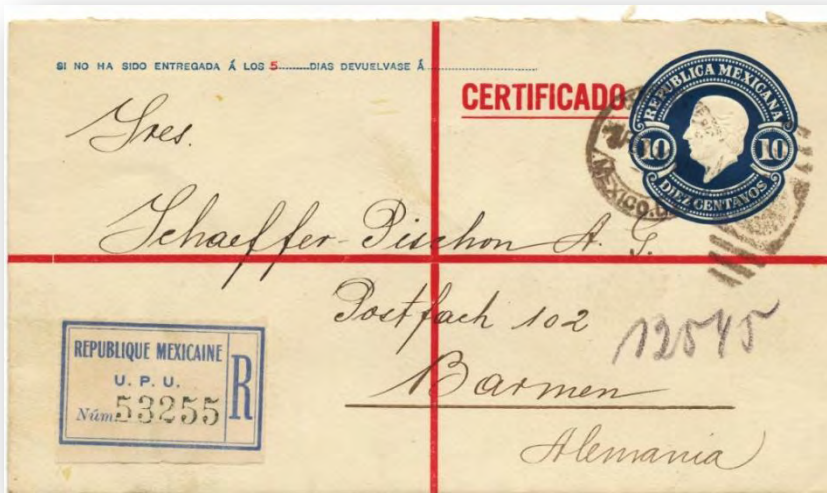 SI NO HA SIDO ENTREGADA Á LOS 5........DIAS DEVUELVASE Á
CERTIFICADO
REPUBLICA MEXICANA
10 10
DIEZ CENTAVOS
MEXICO. D.
Sres.
Schaeffer-Pischon A. G.
Postfach 102
12545
Barmen
Alemania
REPUBLIQUE MEXICAINE
U. P. U.
Núm. 53255
R